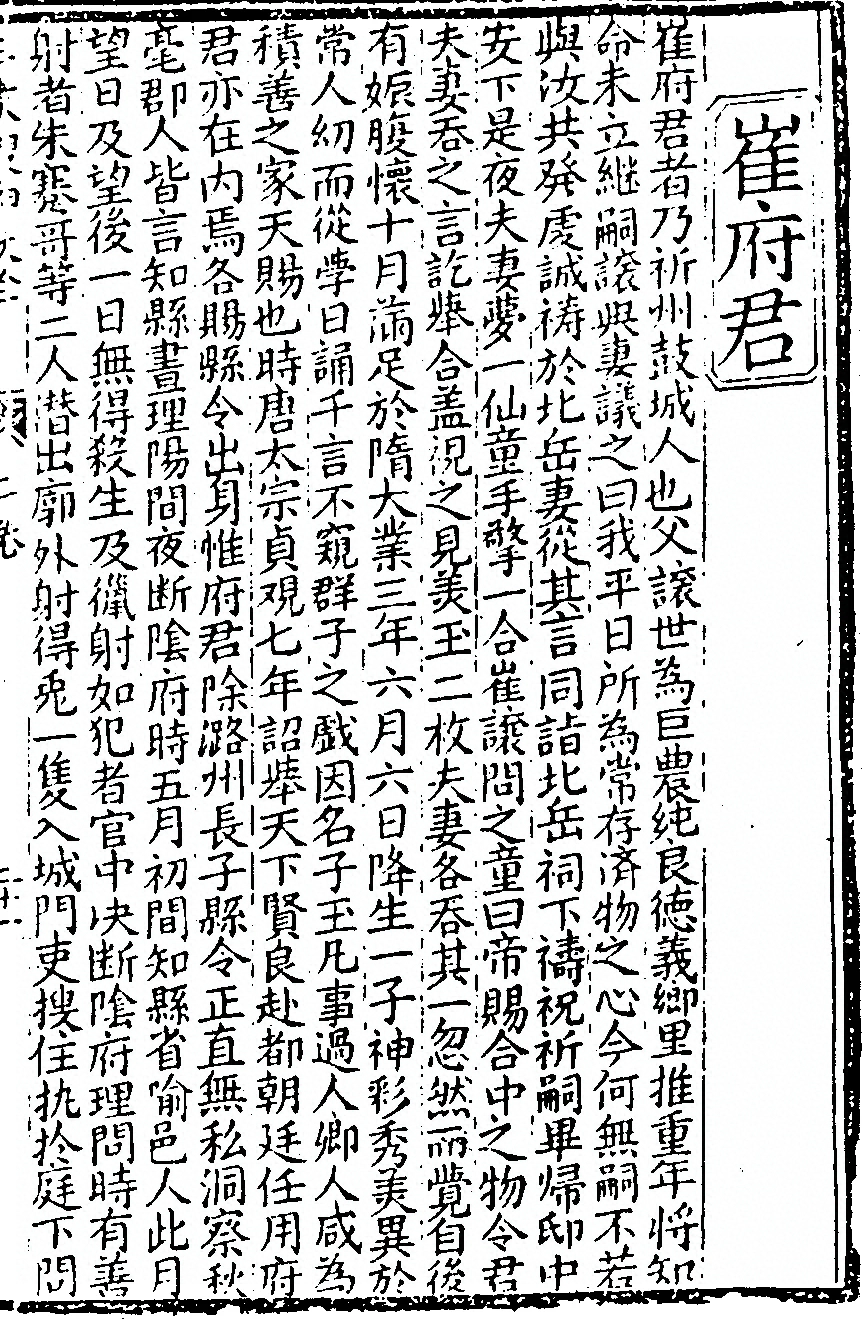 崔府君
崔府君者乃祈州鼓城人也父讓世為巨農純良德義鄉里推重年將知
命未立継嗣讓與妻議之曰我平日所為常存済物之心今何無嗣不若
與汝共發虔誠祷於北岳妻從其言同詣北岳祠下禱祝祈嗣畢歸邸中
安下是夜夫妻夢一仙童手擎一合崔讓問之童曰帝賜合中之物令君
夫妻吞之言訖舉合盖視之見美玉二枚夫妻各吞其一忽然而覺自後
有娠腹懷十月滿足於隋大業三年六月六日降生一子神彩秀美異於
常人幼而從學日誦千言不窺群子之戲因名子玉凡事過人鄉人咸為
積善之家天賜也時唐太宗貞觀七年詔舉天下賢良赴都朝廷任用府
君亦在内焉各賜縣令出身惟府君除潞州長子縣令正直無私洞察秋
毫郡人皆言知縣晝理陽間夜断陰府時五月初間知縣省喻邑人此月
望日及望後一日無得殺生及獵射如犯者官中决断陰府理問時有善
射者朱寋哥等二人潜出廓外射得兎一隻入城門吏搜住执於庭下問
二卷